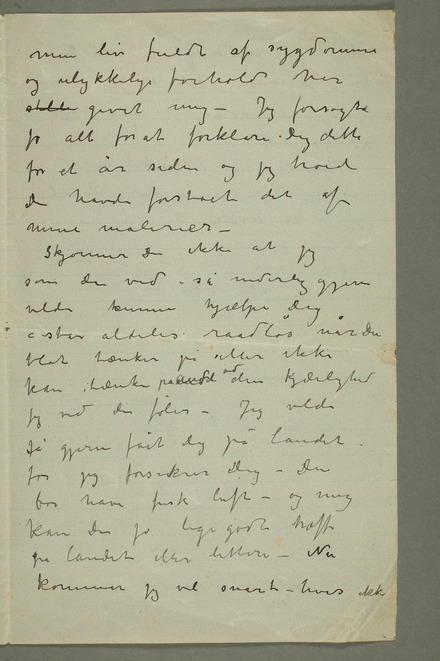 min liv fuldt af sygdomme
og ulykkelige forhold har
givet mig – Jeg forsøgte
jo alt for at forklare Dig dette
for et år siden og jeg troede
Du havde forstået det af
mine malerier –
Skjønner Du ikke at jeg
som Du ved – så inderlig gjerne
vilde kunne hjælpe Dig
står aldeles raadløs når Du
blot tænker på eller ikke
kan tænke på den Kjærlighed
jeg ved Du føler – Jeg vilde
så gjerne fåt Dig på landet.
for jeg forsikrer Dig – Du
bør have frisk luft – og mig
kan Du jo ligegodt træffe
på landet eller lettere – Nu
kommer jeg vel snart – hvis ikke